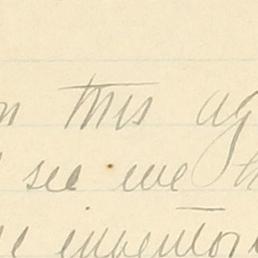 this ag
see we th
inventor